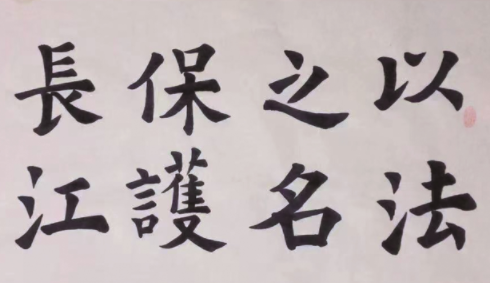 以法
之名
保護
長江